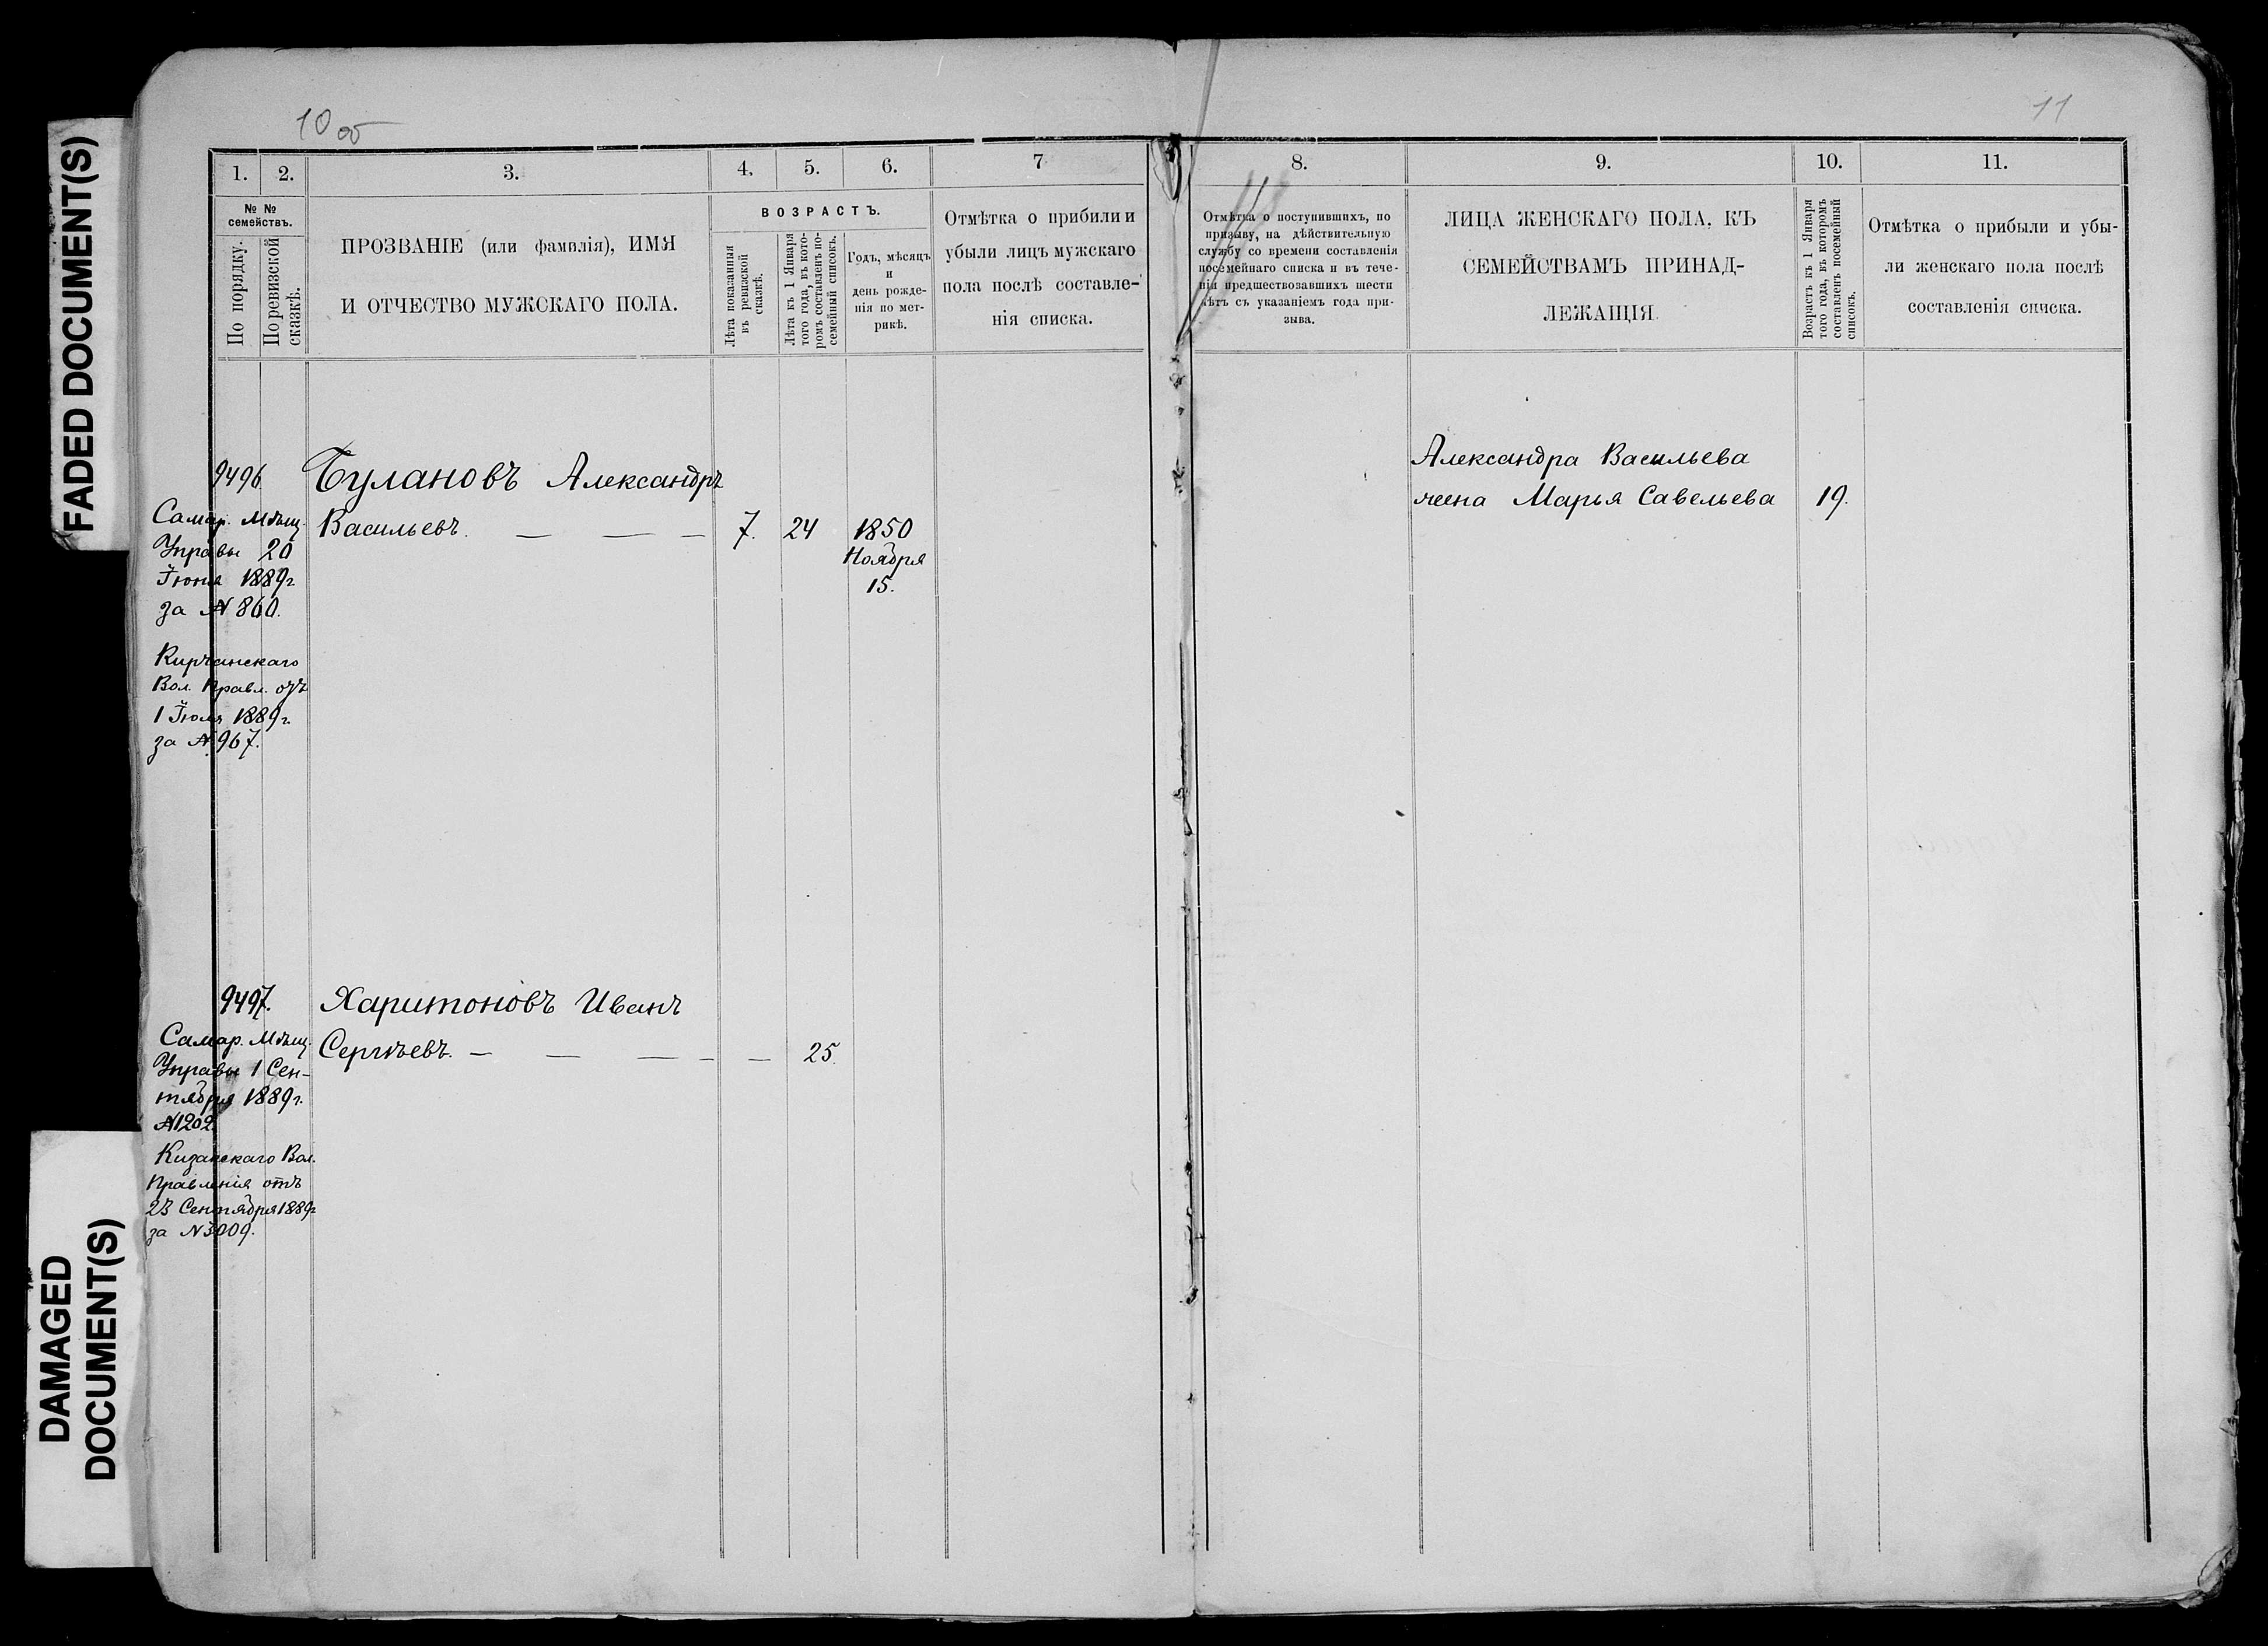 FADED DOCUMENT(S)
DAMAGED
DOCUMENT(S)
10 об
1.
2.
3.
4.
5.
6.
7
№ №
семействъ.
По порядку.
По ревизской
сказкѣ.
ПРОЗВАНІЕ (или фамилія), ИМЯ
И ОТЧЕСТВО МУЖСКАГО ПОЛА.
ВОЗРАСТЪ.
Лѣта показанныя
въ ревизской
сказкѣ.
Лѣта къ 1 Января
того года, въ кото-
ромъ составленъ по-
семейный списокъ.
Годъ, мѣсяцъ
и
день рожде-
нія по мет-
рикѣ.
Отмѣтка о прибыли и
убыли лицъ мужскаго
пола послѣ составле-
нія списка.
9496
Самар. Мѣщ.
Управы 20
Іюня 1889г
за № 860.
Вол. Правл. отъ
1 Іюля 1889г.
за № 967.
Булановъ Александръ
Васильевъ. — — — 7. 24 1850
Ноября
15.
9497.
Самар. Мѣщ.
Управы 1 Сен-
тября 1889г.
№1202.
Вол.
Правленія отъ
23 Сентября 1889г
за №3009.
Харитоновъ Иванъ
Сергѣевъ. — — — — — 25.
11
8.
9.
10.
11.
Отмѣтка о поступившихъ, по
призыву, на дѣйствительную
службу со времени составленія
посемейнаго списка и въ тече-
ніи предшествовавшихъ шести
лѣтъ съ указаніемъ года при-
зыва.
ЛИЦА ЖЕНСКАГО ПОЛА, КЪ
СЕМЕЙСТВАМЪ ПРИНАД-
ЛЕЖАЩІЯ.
Возрастъ къ 1 Января
того года, въ которомъ
составленъ посемейный
списокъ.
Отмѣтка о прибыли и убы-
ли женскаго пола послѣ
составленія списка.
Александра Васильева
жена Марья Савельева 19.